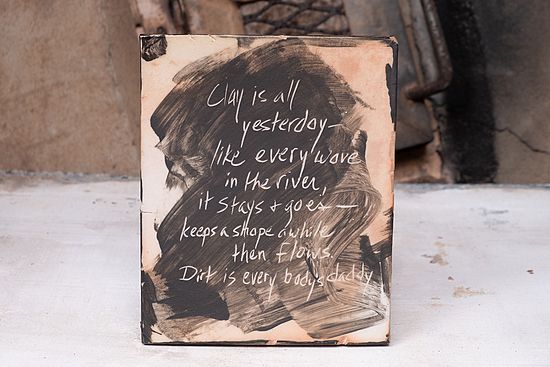 Clay is all
yesterday—
like every wave
in the river,
it stays + goes—
keeps a shape awhile
then flows.
Dirt is every bodys daddy